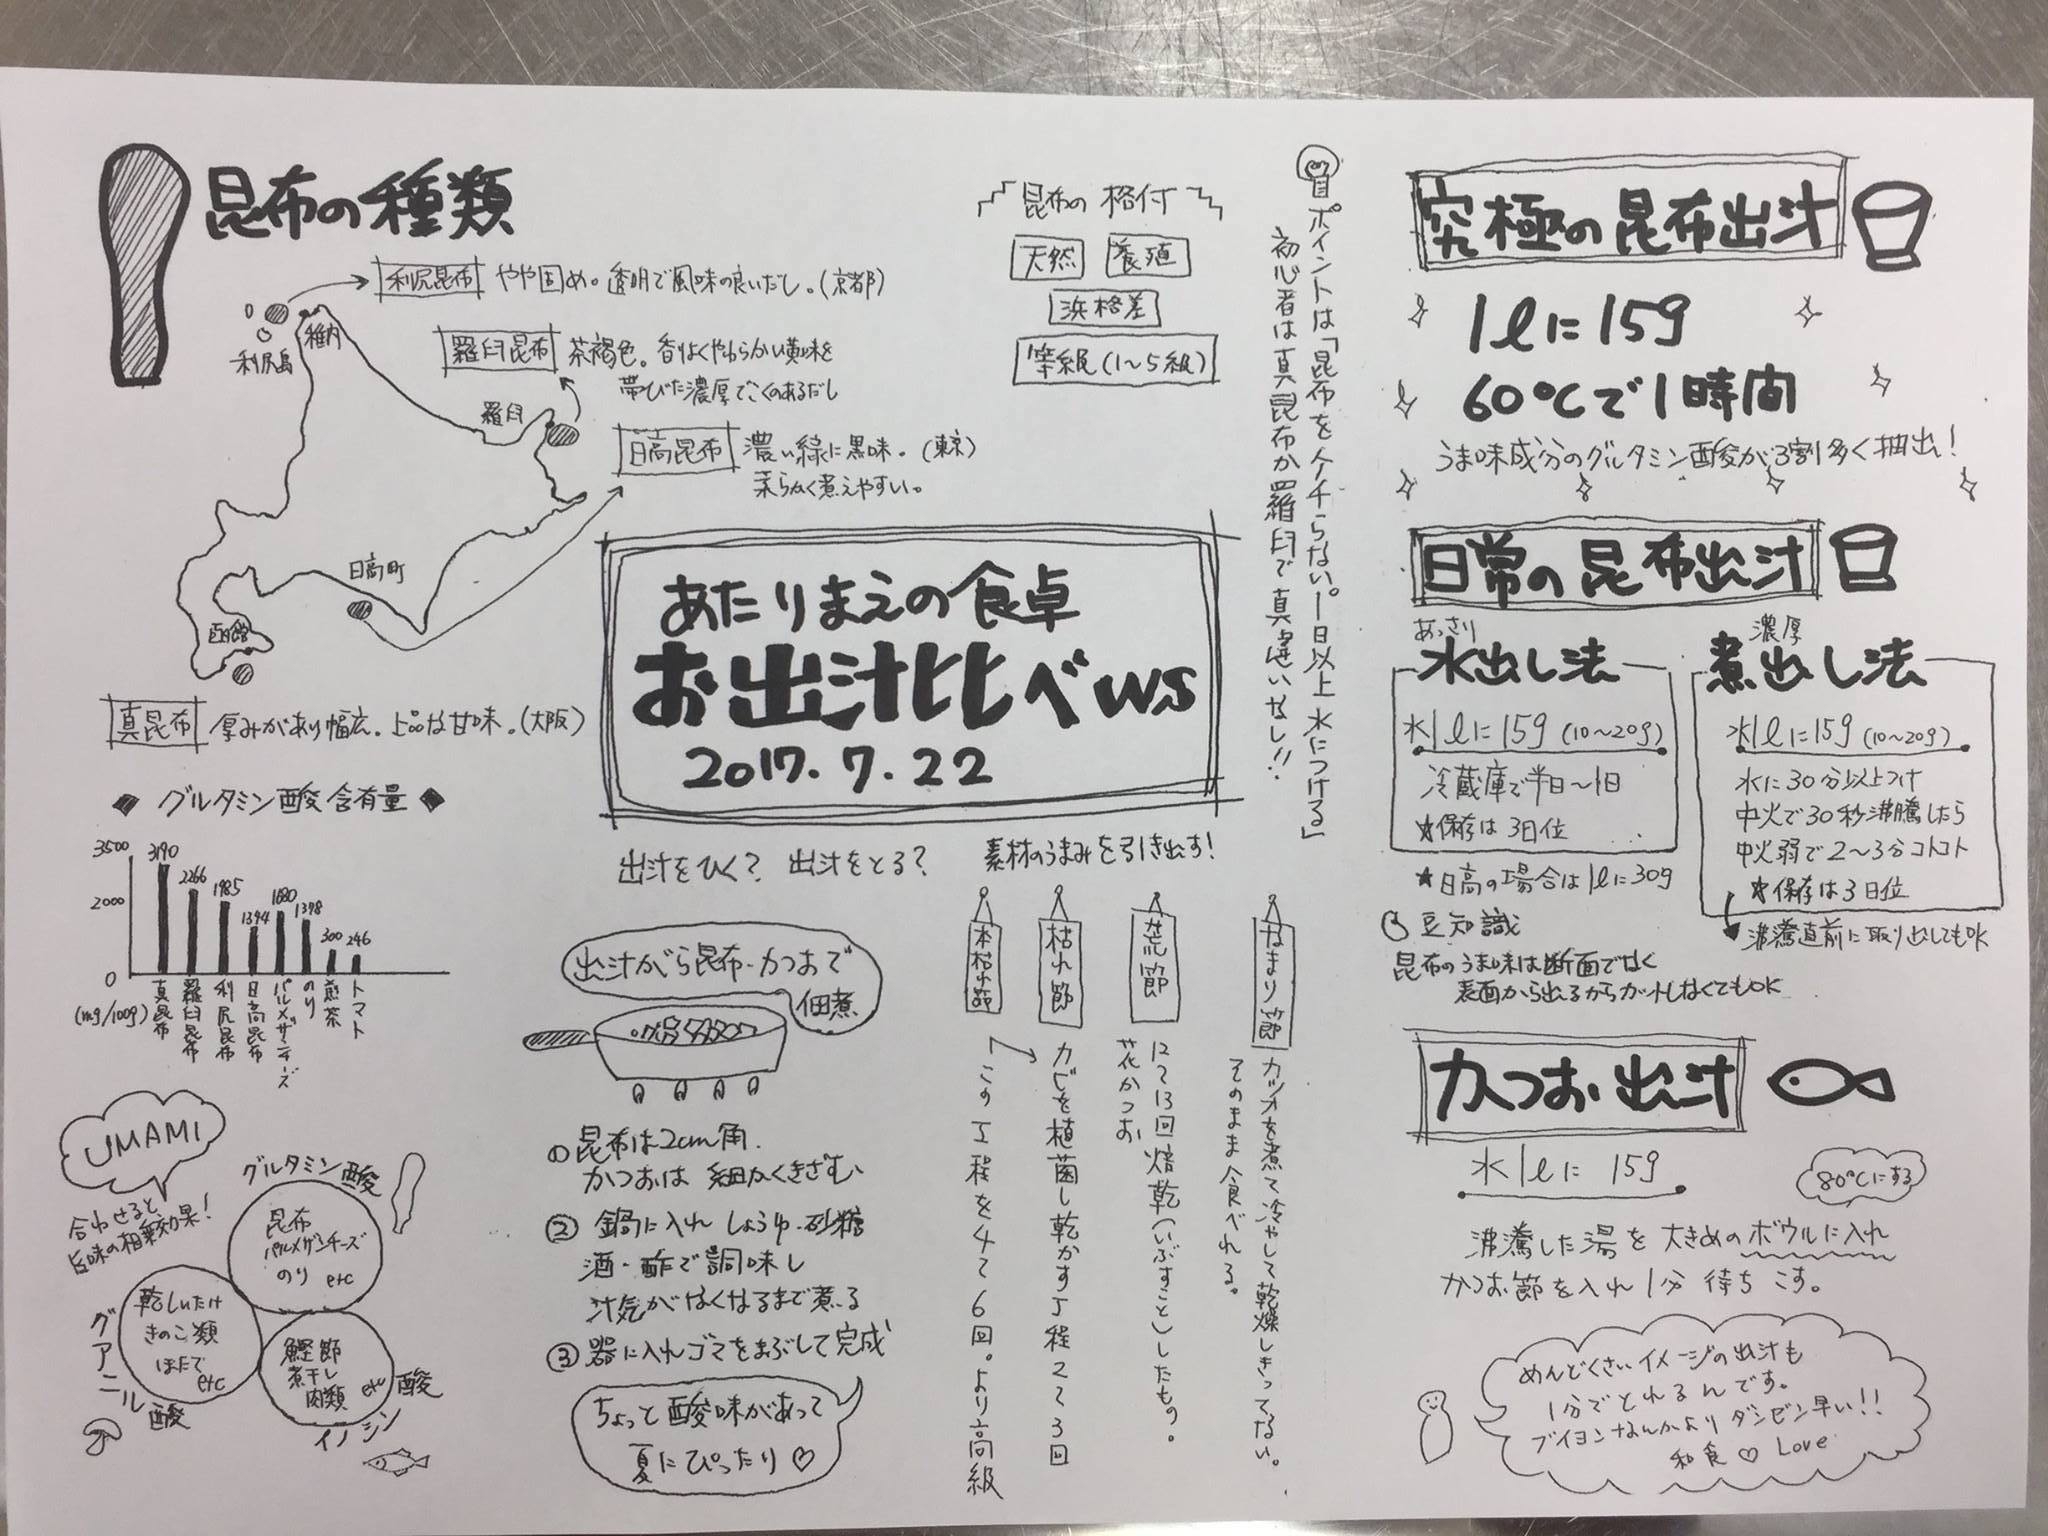 昆布の種類
利尻昆布 やや固め。透明で風味の良いだし。(京都)
稚内
利尻島
羅臼昆布 茶褐色。香りよくやわらかい黄味を
帯びた濃厚でこくのあるだし
羅臼
日高昆布 濃い緑に黒味。(東京)
柔らかく煮えやすい。
日高町
函館
真昆布 厚みがあり幅広。上品な甘味。(大阪)
昆布の格付
天然 養殖
浜格差
等級(1〜5級)
ポイントは「昆布をケチらない。1日以上水につける」
初心者は真昆布か羅臼で間違いなし!!
あたりまえの食卓
お出汁比べws
2017.7.22
グルタミン酸含有量
3500
2000
0
(mg/100g)
3190 2266 1985 1344 1680 1378 300 246
真昆布
羅臼昆布
利尻昆布
日高昆布
パルメザンチーズ
のり
煎茶
トマト
UMAMI
合わせると
旨味の相乗効果!
グルタミン酸
昆布
パルメザンチーズ
のり etc
グアニル酸
乾しいたけ
きのこ類
ほたて
etc
イノシン酸
鰹節
煮干し
肉類 etc
出汁をひく? 出汁をとる? 素材のうまみを引き出す!
出汁がら昆布・かつおで
佃煮
① 昆布は2cm角.
かつおは細かくきざむ
② 鍋に入れ しょうゆ・砂糖
酒・酢で調味し
汁気がなくなるまで煮る
③ 器に入れゴマをまぶして完成
ちょっと酸味があって
夏にぴったり♡
なまり節 カツオを煮て冷やして乾燥しきってない。
そのまま食べれる。
荒節 12〜13回焙乾(いぶすこと)したもの。
花かつお
枯れ節 カビを植菌し乾かす工程2〜3回
本枯れ節 この工程を4〜6回。より高級
究極の昆布出汁
1lに15g
60℃で1時間
うま味成分のグルタミン酸が3割多く抽出!
日常の昆布出汁
あっさり
水出し法
水1lに15g(10〜20g)
冷蔵庫で半日〜1日
★保存は3日位
★日高の場合は1lに30g
濃厚
煮出し法
水1lに15g(10〜20g)
水に30分以上つけ
中火で30秒沸騰したら
中火弱で2〜3分コトコト
★保存は3日位
沸騰直前に取り出してもOK
豆知識
昆布のうま味は断面でなく
表面から出るからカットしなくてもOK
かつお出汁
水1lに 15g
80℃にする
沸騰した湯を大きめのボウルに入れ
かつお節を入れ1分待ちこす。
めんどくさいイメージの出汁も
1分でとれるんです。
ブイヨンなんかよりダンゼン早い!!
和食♡Love